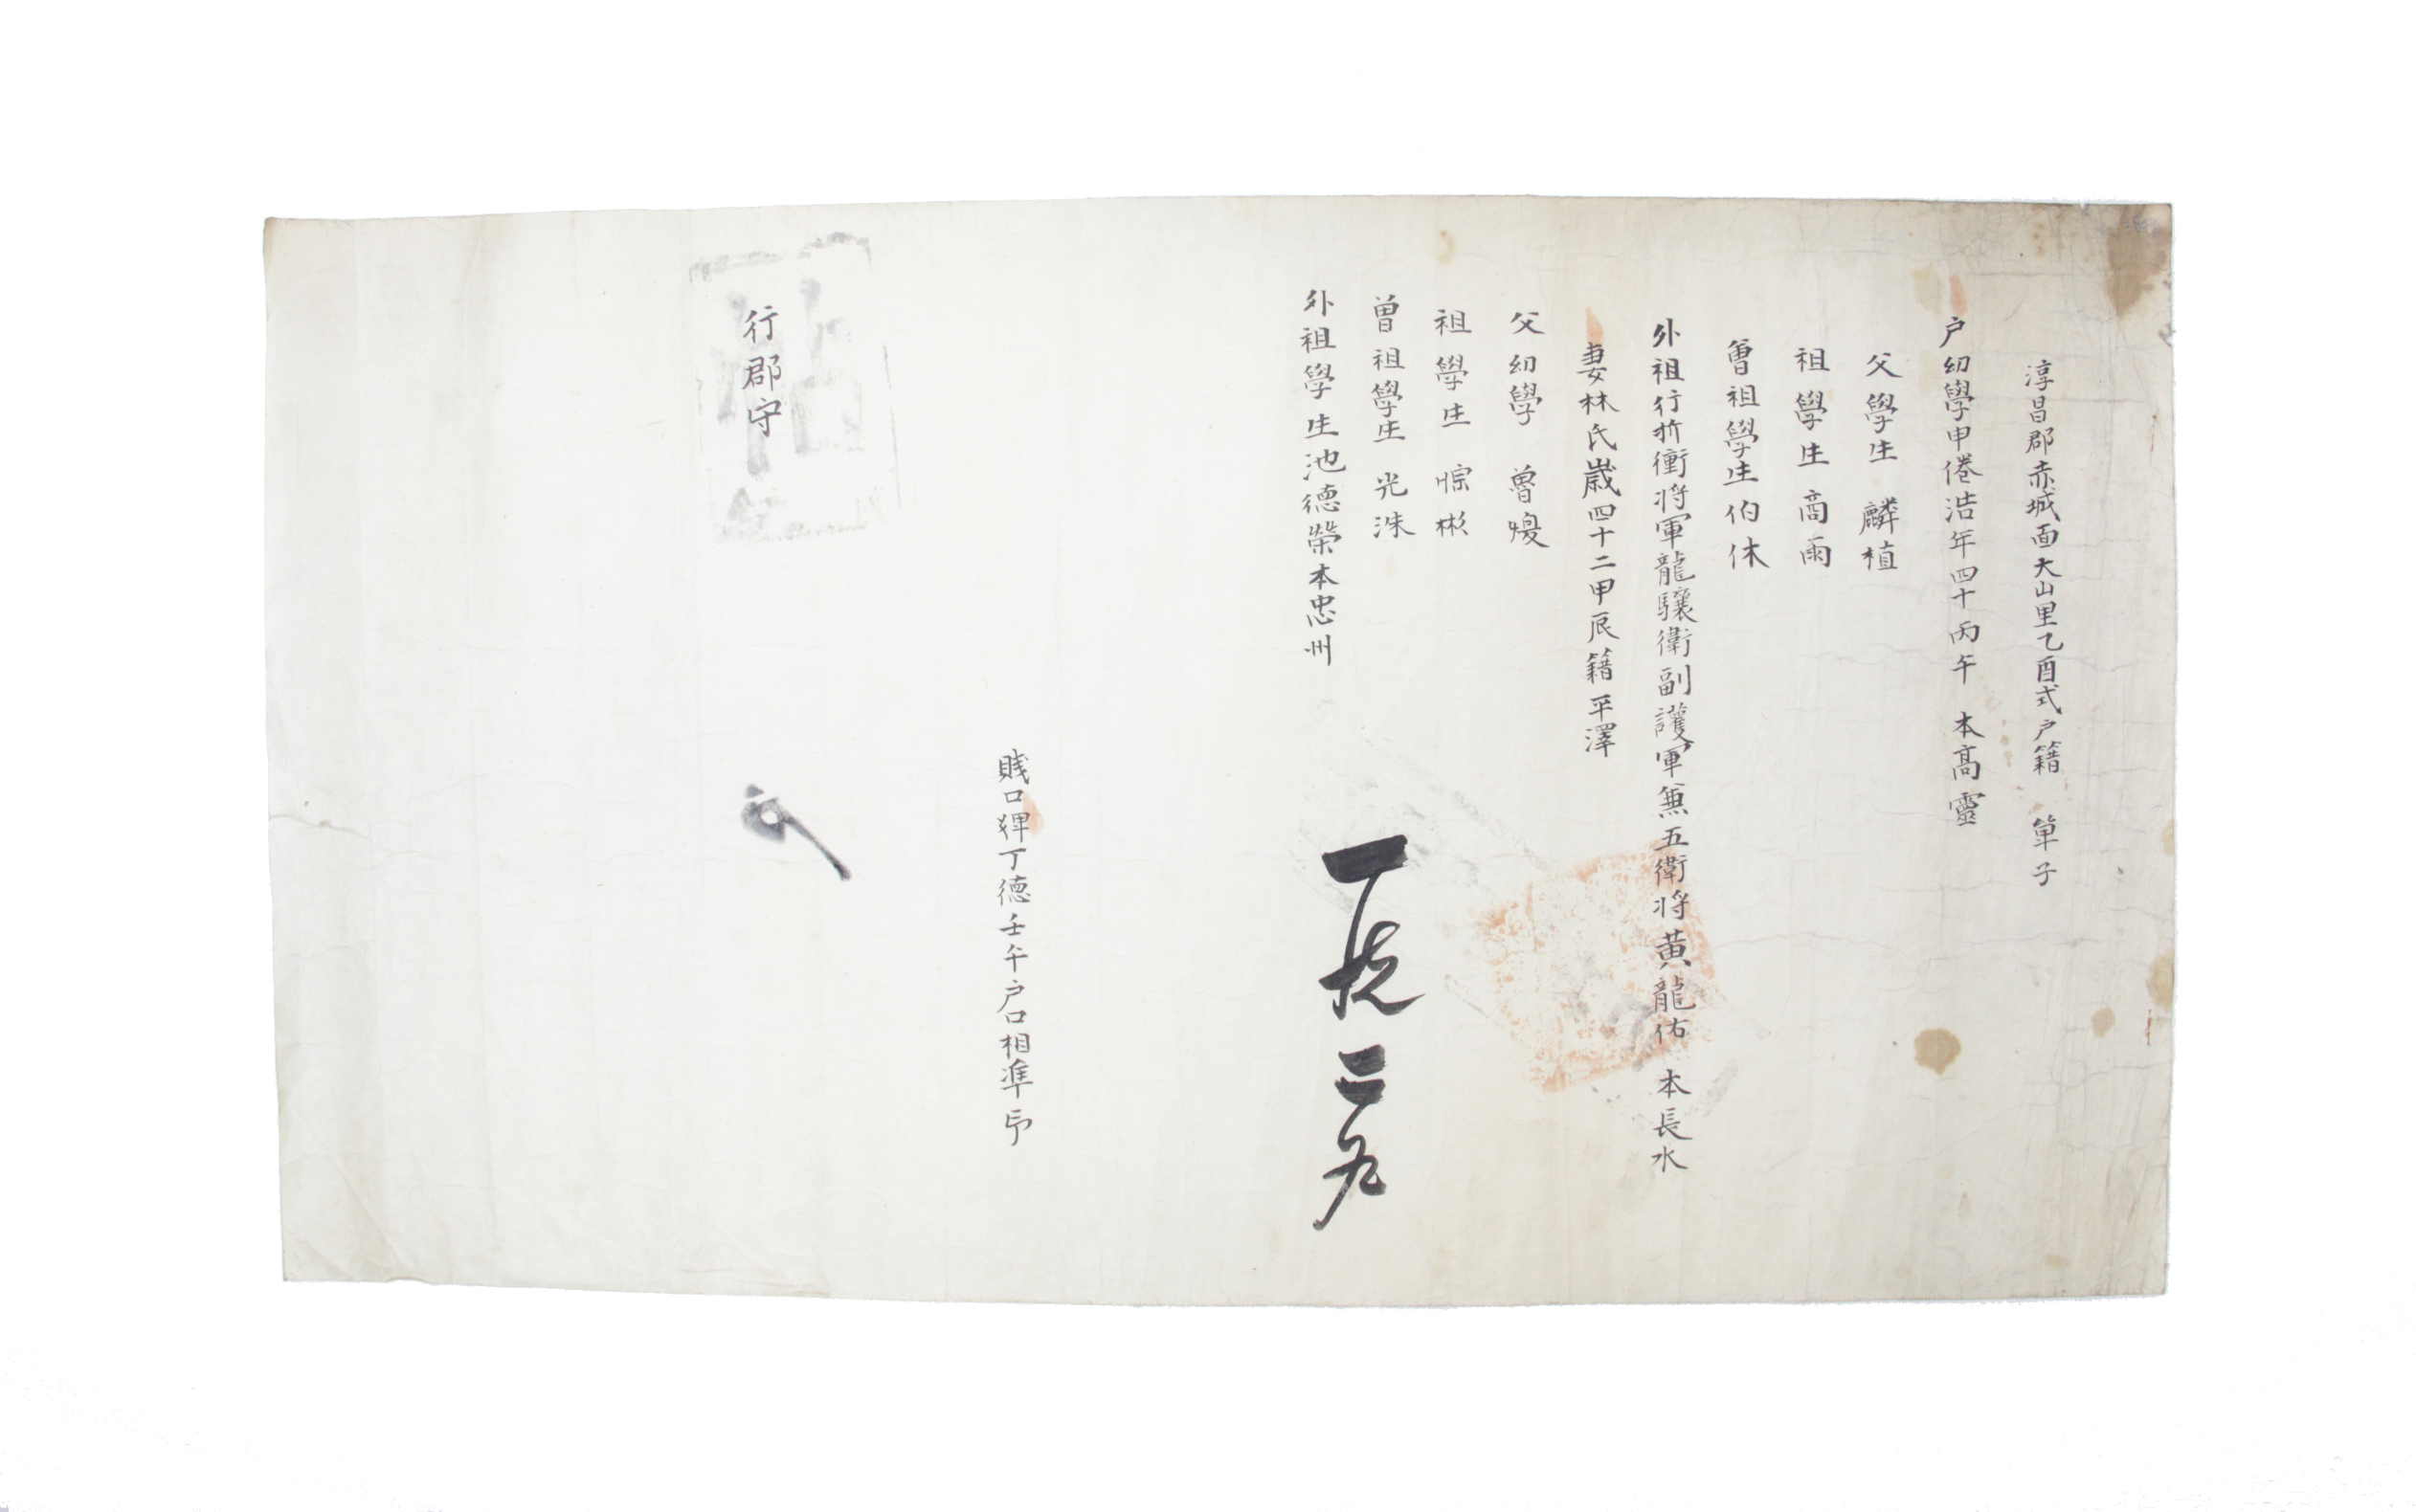 淳昌郡赤城面大山里乙酉式户籍 單子
户幼學申倦浩年四十丙午 本高靈
父學生 麟植
祖學生 商雨
曾祖學生伯休
外祖行折衝將軍龍驤衛副護軍兼五衛將黃龍佑 本長水
妻林氏歲四十二甲辰籍平澤
父幼學 曾煖
祖學生 悰彬
曾祖學生 光洙
外祖學生池德榮本忠州
賤口婢丁德壬午户口相準印
行郡守
帖